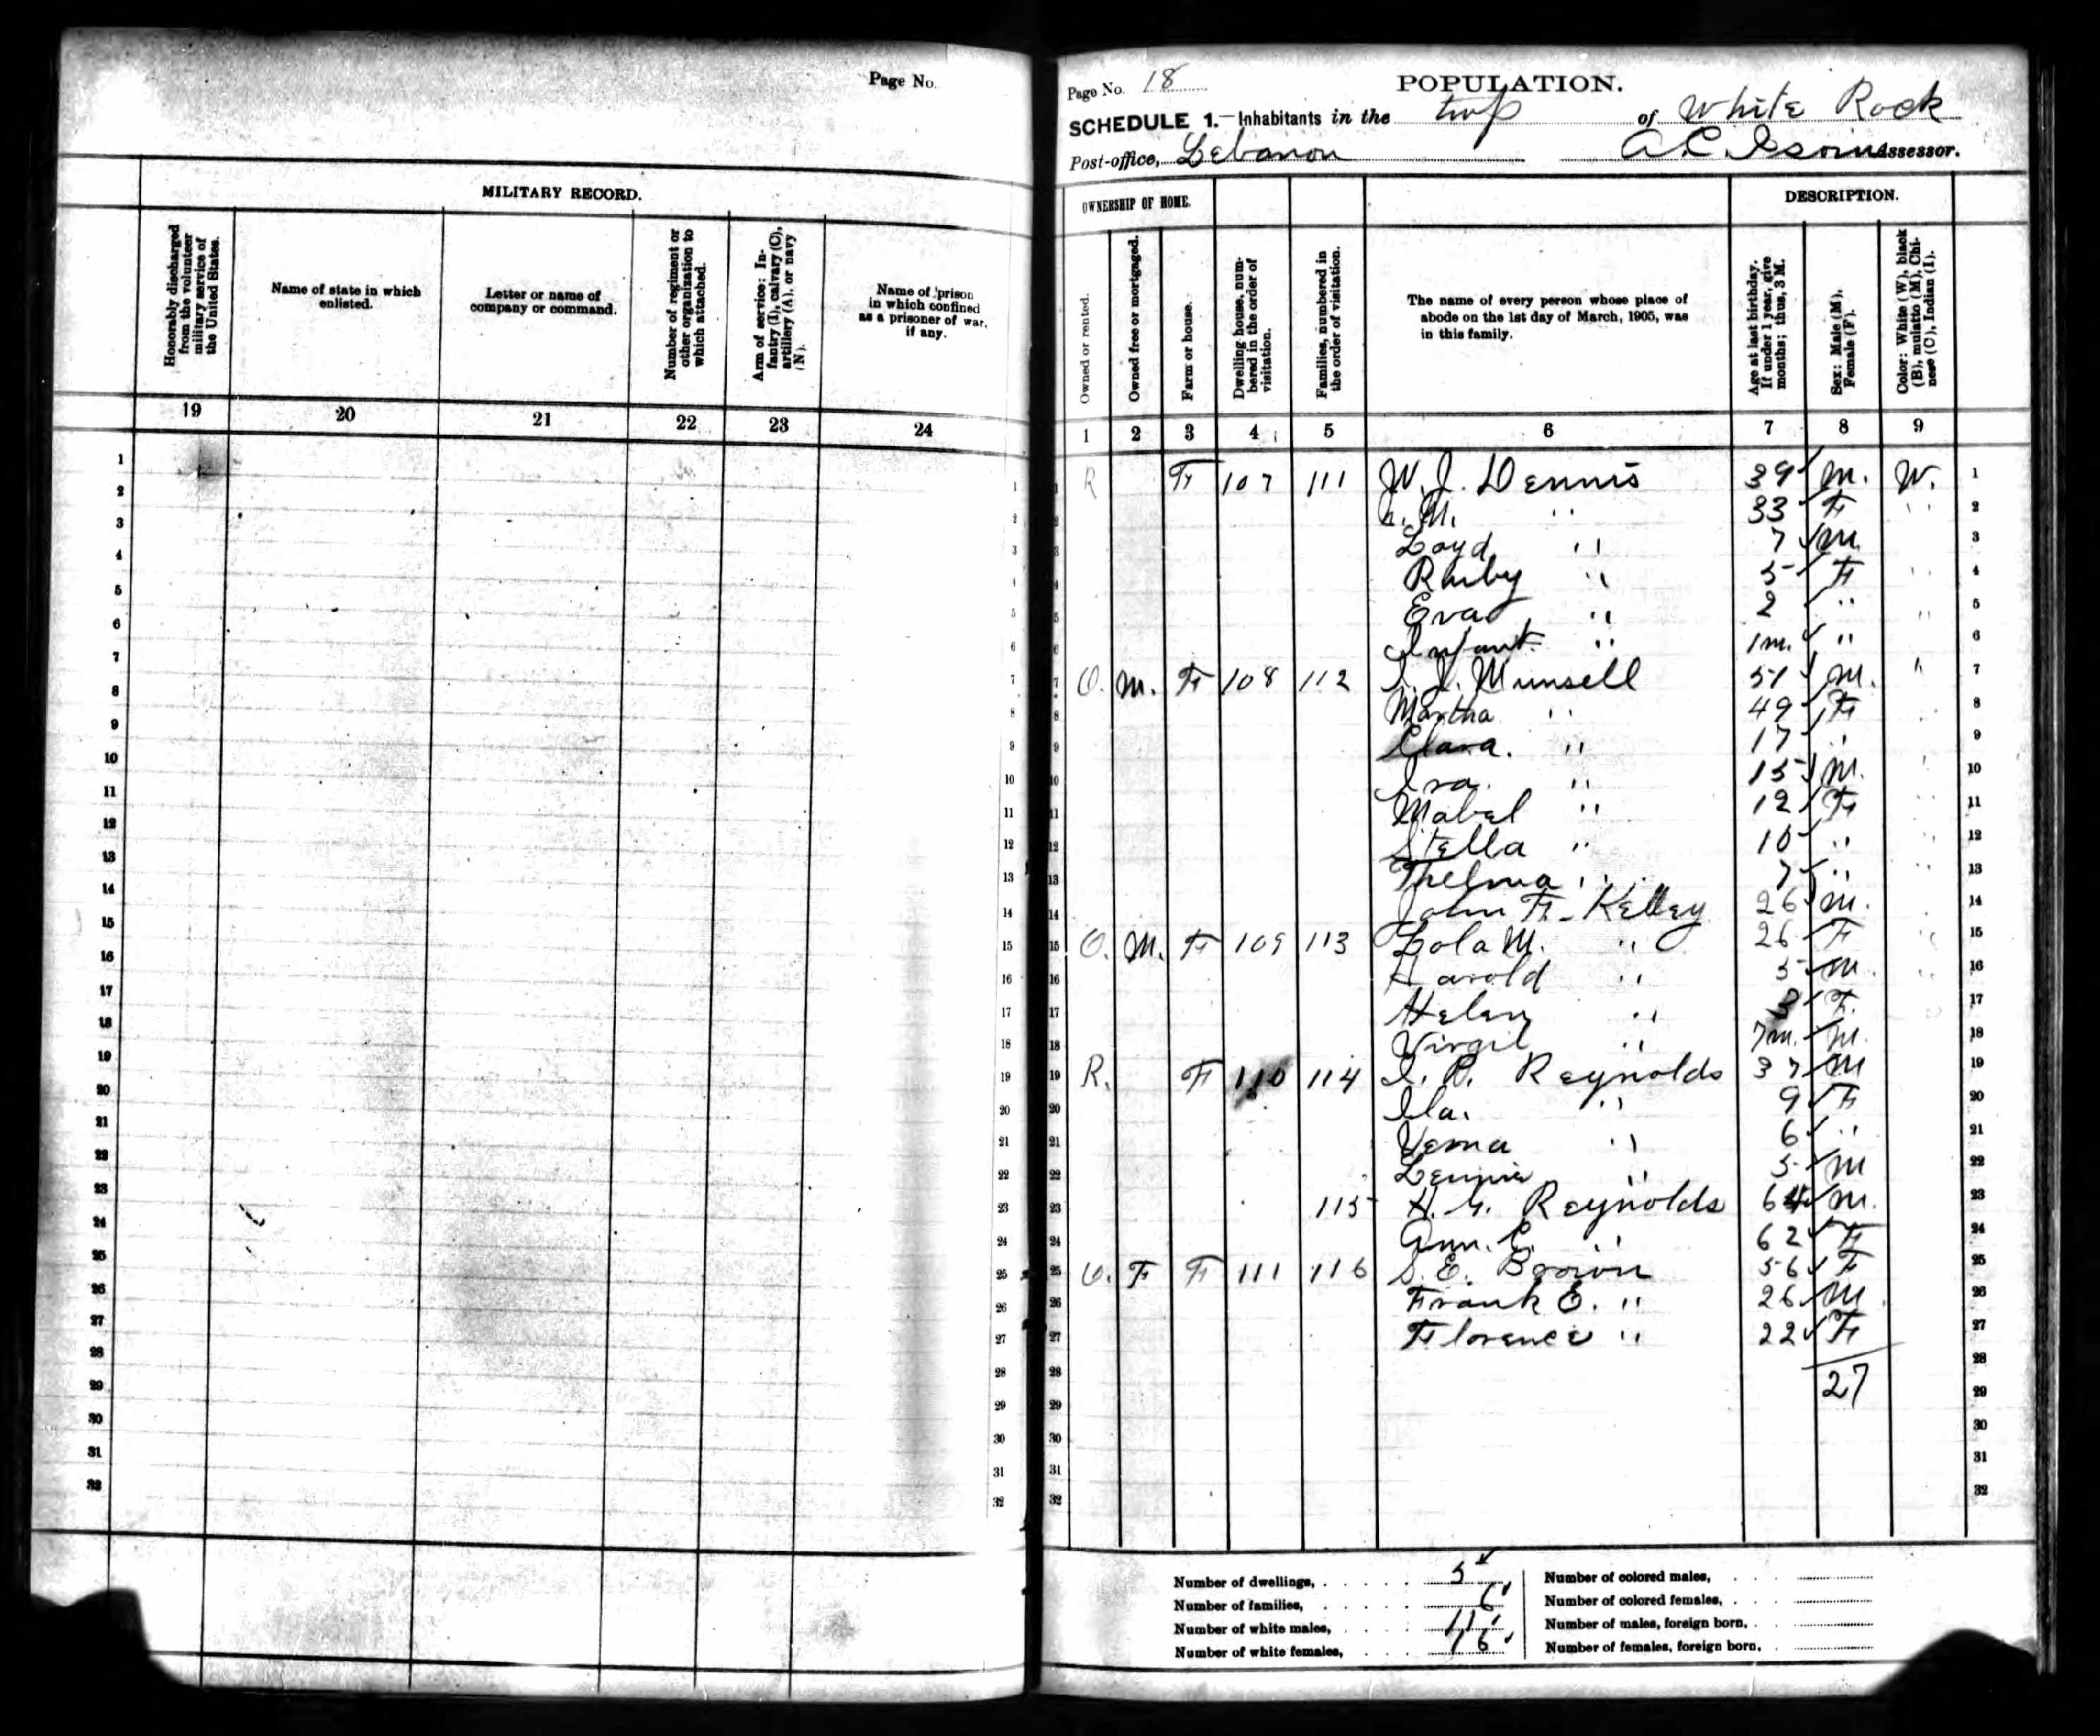 Page No.
MILITARY RECORD.
Honorably discharged from the volunteer military service of the United States.
Name of state in which enlisted.
Letter or name of company or command.
Number of regiment or other organization to which attached.
Arm of service: Infantry (I), calvary (C), artillery (A), or navy (N).
Name of prison in which confined as a prisoner of war, if any.
19 20 21 22 23 24
1
2
3
4
5
6
7
8
9
10
11
12
13
14
15
16
17
18
19
20
21
22
23
24
25
26
27
28
29
30
31
32
Page No. 18
POPULATION.
SCHEDULE 1.—Inhabitants in the twp of White Rock
Post-office, Lebanon A. C. Assessor.
OWNERSHIP OF HOME.
DESCRIPTION.
Owned or rented.
Owned free or mortgaged.
Farm or house.
Dwelling house, numbered in the order of visitation.
Families, numbered in the order of visitation.
The name of every person whose place of abode on the 1st day of March, 1905, was in this family.
Age at last birthday. If under 1 year, give months; thus, 3 M.
Sex: Male (M), Female (F).
Color: White (W), black (B), mulatto (M), Chinese (C), Indian (I).
1 2 3 4 5 6 7 8 9
1 R F 107 111 W. J. Dennis 39 M. W. 1
2 M. " 33 F " 2
3 Loyd " 7 M 3
4 Rhuby " 5 F " 4
5 Eva " 2 " " 5
6 Infant " 1m. " " 6
7 O. M. F 108 112 Munsell 51 M. " 7
8 Martha " 49 F " 8
9 Clara. " 17 " " 9
10 Ira. " 15 M. " 10
11 Mabel " 12 F " 11
12 Stella " 10 " " 12
13 Thelma " 7 " " 13
14 John F. Kelley 26 M. 14
15 O. M. F 109 113 Lola M. " 26 F " 15
16 Harold " 5 M. " 16
17 Helen " F. 17
18 Virgil " 7m. M. 18
19 R. F 110 114 Reynolds 37 M 19
20 Ila. " 9 F 20
21 Verna " 6 " 21
22 Lennie " 5 M 22
23 115 H. G. Reynolds 64 M. 23
24 Ann. E. " 62 F 24
25 O. F F 111 116 S. E. Brown 56 F 25
26 Frank E. " 26 M 26
27 Florence " 22 F 27
28
27
29
30
31
32
Number of dwellings, 5
Number of families, 6
Number of white males, 11
Number of white females, 16
Number of colored males,
Number of colored females,
Number of males, foreign born,
Number of females, foreign born,